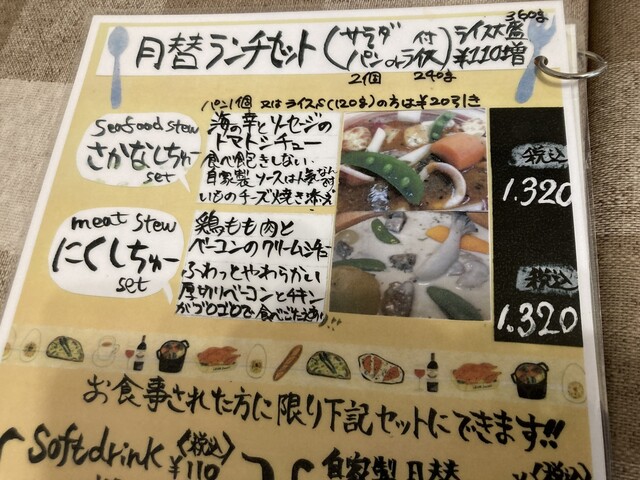 月替ランチセット(サラダ付 パンorライス)ライス大盛¥110増
350g
2個 240g
パン1個 又はライスS(120g)の方は¥20引き
Seafood stew
さかなしちゅー
set
海の幸とソーセージの
トマトシチュー
食べ飽きしない
自家製ソースは人気なんです
いものチーズ焼き添え
税込
1.320
meat stew
にくしちゅー
set
鶏もも肉と
ベーコンのクリームシチュー
ふわっとやわらかい
厚切りベーコンとチキン
がゴロゴロで食べごたえあり!!
税込
1.320
お食事された方に限り下記セットにできます!!
Softdrink (税込)
¥110
自家製 月替
(税込)